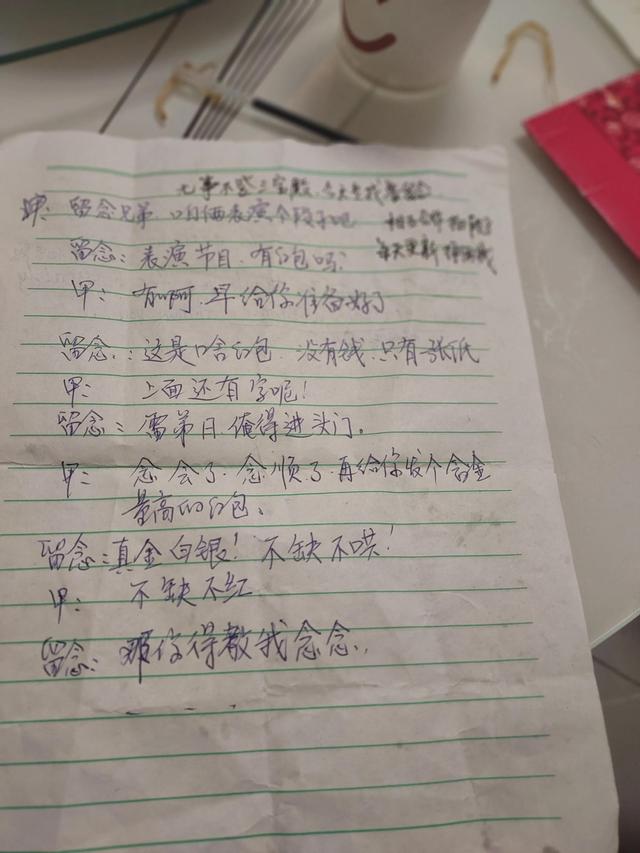 无事不登三宝殿
甲：留念兄弟 咱俩表演个段子吧
每天更新
留念：表演节目．有红包吗？
甲：有啊．早给你准备好了
留念：这是啥红包．没有钱．只有一张纸
甲：上面还有字呢！
留念：弟日．俺得进头门．
甲：念会了．念顺了．再给你发个含金
量高的红包．
留念：真金白银！不缺不哄！
甲：不缺不红
留念：那你得教我念念．